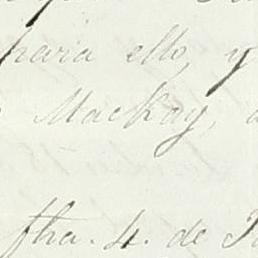 para ello, y
Mackay,
fha. 4. de